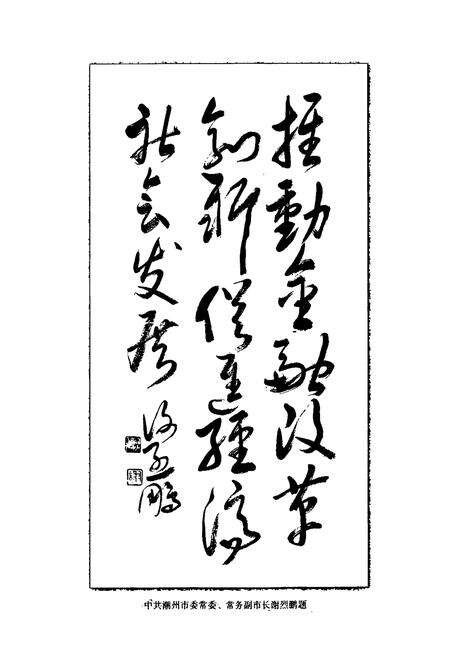 推動金融改革
創新促進經濟
社会发展
谢烈鹏
中共潮州市委常委、常务副市长谢烈鹏题